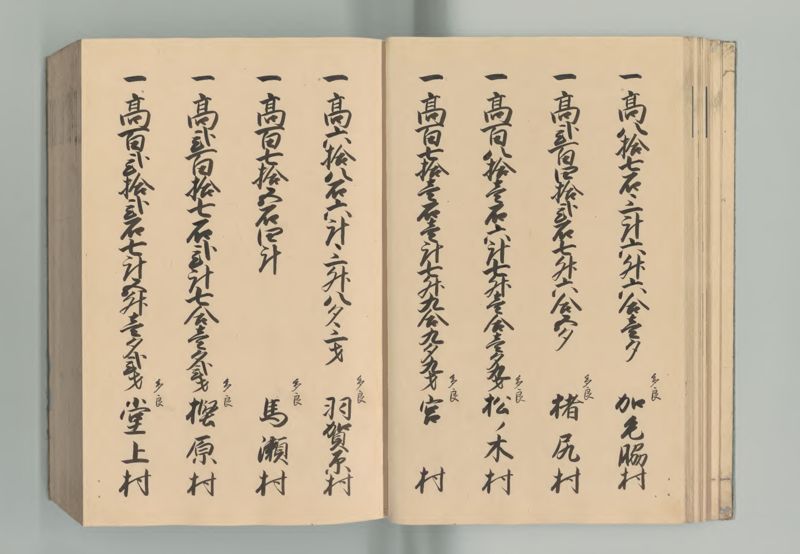 一高八拾七石二斗六升六合壱夕 多良 加毛脇村
一高弐百四拾弐石七升六合六夕 楮尻村
一高百八拾壱石六斗七升壱合壱夕九才 多良 松ノ木村
一高百七拾壱石壱斗七升九合九夕九才 多良 宮村
一高六拾八石六斗二升八夕二才 多良 羽賀原村
一高百七拾五石四斗 多良 馬瀬村
一高弐百拾七石弐斗七合壱夕弐才 多良 樫原村
一高百弐拾弐石七斗五升壱夕弐才 多良 堂上村